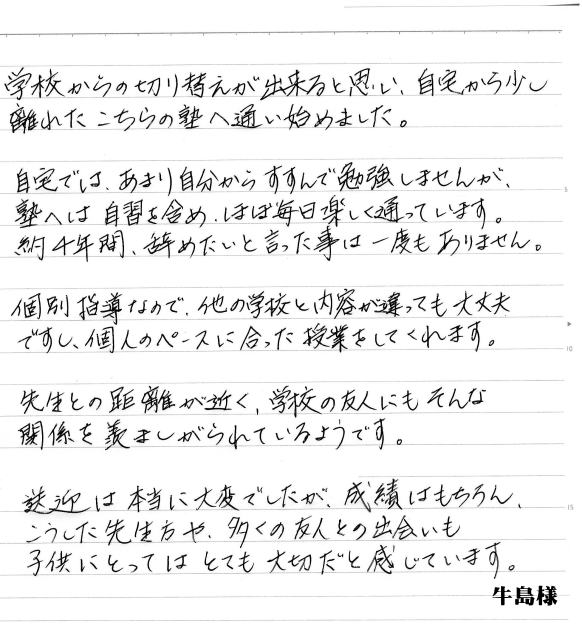 学校からの切り替えが出来ると思い、自宅から少し
離れたこちらの塾へ通い始めました。
自宅では、あまり自分からすすんで勉強しませんが、
塾へは自習を含め、ほぼ毎日楽しく通っています。
約4年間、辞めたいと言った事は一度もありません。
個別指導なので、他の学校と内容が違っても大丈夫
ですし、個人のペースに合った授業をしてくれます。
先生との距離が近く、学校の友人にもそんな
関係を羨ましがられているようです。
送迎は本当に大変でしたが、成績はもちろん、
こうした先生方や、多くの友人との出会いも
子供にとってはとても大切だと感じています。
牛島様
5
10
15